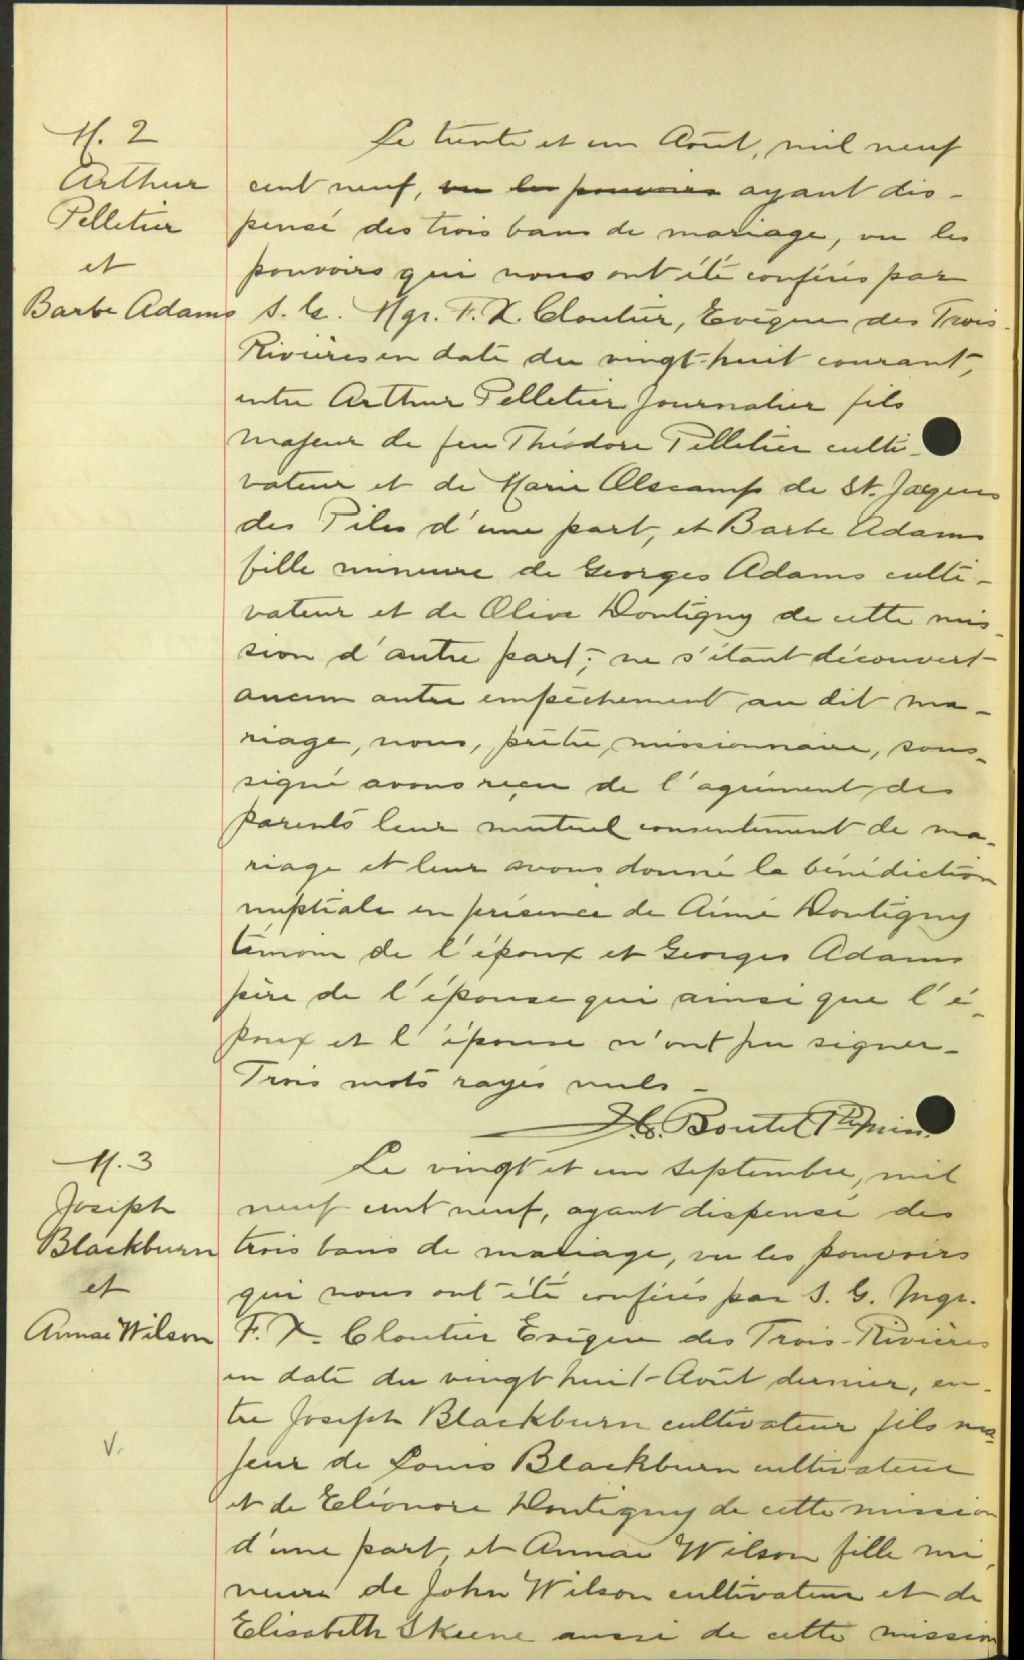 M. 2
Arthur
Pelletier
et
Barbe Adams
Le trente et un Août, mil neuf
cent neuf, vu les pouvoirs ayant dis-
pensé des trois bans de mariage, vu les
pouvoirs qui nous ont été conférés par
S. G. Mgr. F. X. Cloutier, Evêque des Trois-
Rivières en date du vingt-huit courant,
entre Arthur Pelletier Journalier fils
majeur de feu Théodore Pelletier culti-
vateur et de Marie Olscamp de St. Jacques
des Piles d'une part, et Barbe Adams
fille mineure de Georges Adams culti-
vateur et de Olive Dontigny de cette mis-
sion d'autre part; ne s'étant découvert
aucun autre empêchement au dit ma-
riage, nous, prêtre, missionnaire, sous-
signé avons reçu de l'agrément des
parents leur mutuel consentement de ma-
riage et leur avons donné la bénédiction
nuptiale en présence de Aimé Dontigny
témoin de l'époux et Georges Adams
père de l'épouse qui ainsi que l'é-
poux et l'épouse n'ont pu signer-
Trois mots rayés nuls -
Boutet Ptre miss.
M. 3
Joseph
Blackburn
et
Annae Wilson
V.
Le vingt et un septembre, mil
neuf cent neuf, ayant dispensé des
trois bans de mariage, vu les pouvoirs
qui nous ont été conférés par S. G. Mgr.
F. X. Cloutier Evêque des Trois-Rivières
en date du vingt huit Août dernier, en-
tre Joseph Blackburn cultivateur fils ma-
jeur de Louis Blackburn cultivateur
et de Eléonore Dontigny de cette mission
d'une part, et Annae Wilson fille mi-
neure de John Wilson cultivateur et de
Elisabeth Skeene aussi de cette mission